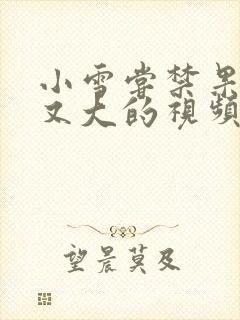 小雪尝禁果
又大的視頻
望晨莫及